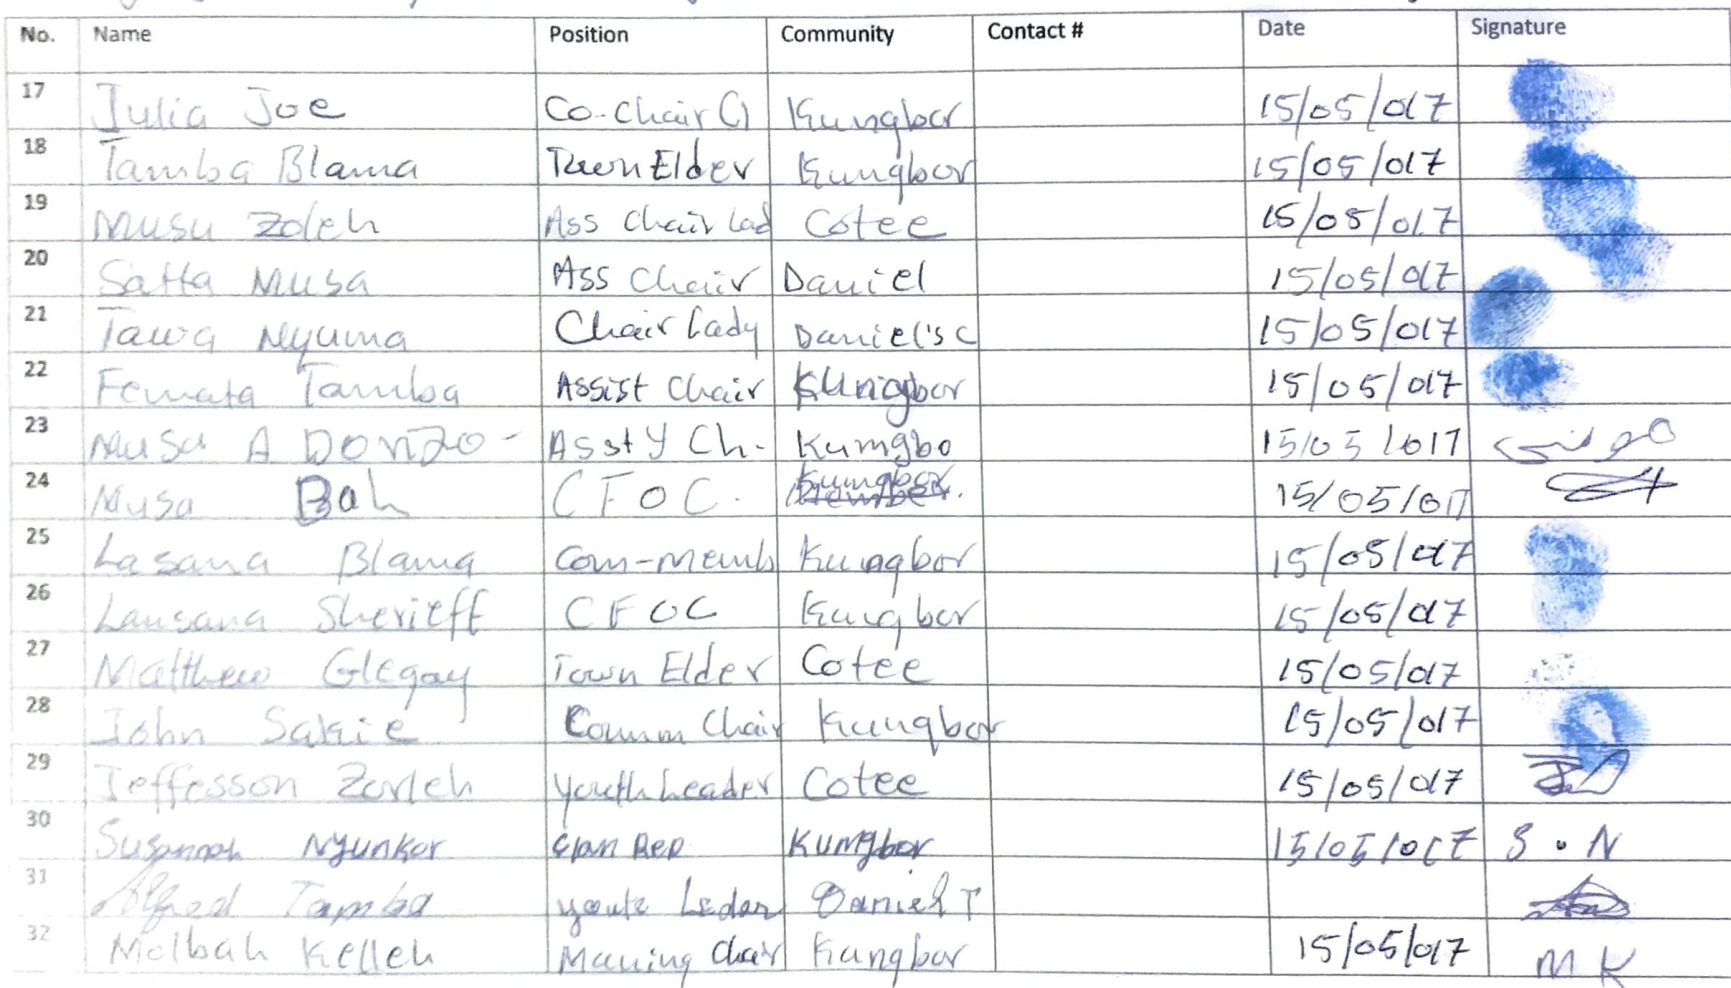 No. Name Position Community Contact # Date Signature
17 Julia Joe Co-Chair Kungbor 15/05/017
18 Tamba Blama Town Elder Kungbor 15/05/017
19 Musu Zoleh Ass Chair Lad Cotee 15/05/017
20 Satta Musa Ass Chair Daniel 15/05/017
21 Tawa Nyuma Chair Lady Daniel's C 15/05/017
22 Femata Tamba Assist Chair Kungbor 15/05/017
23 Musa A Donzo - Asst Y Ch. Kumgbo 15/05/017
24 Musa Bah CFOC. Kumgbor 15/05/017
25 Lasana Blama Com-memb Kungbor 15/05/017
26 Lansana Sherieff CFOC Kungbor 15/05/017
27 Matthew Glegay Town Elder Cotee 15/05/017
28 John Sakie Comm Chair Kungbor 15/05/017
29 Jeffesson Zorleh Youth Leader Cotee 15/05/017
30 Susannah Nyunkor Clan Rep Kumgbor 15/05/017 S.N
31 Tamba youte Ledar Daniel T
32 Molbah Kelleh Mauing Chair Kungbor 15/05/017 MK